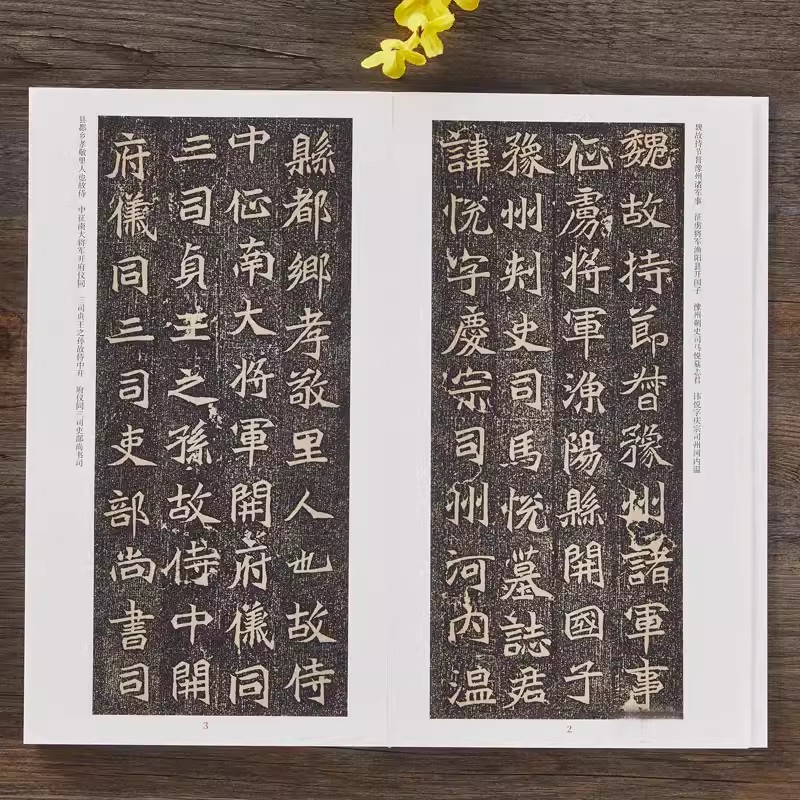 魏故持节督豫州诸军事　征虏将军渔阳县开国子　豫州刺史司马悦墓志君　讳悦字庆宗司州河内温
魏故持節督豫州諸軍事
征虜將軍漁陽縣開國子
豫州刺史司馬悅墓誌君
諱悅字慶宗司州河内温
2
縣都鄉孝敬里人也故侍
中征南大將軍開府儀同
三司貞王之孫故侍中開
府儀同三司吏部尚書司
县都乡孝敬里人也故侍　中征南大将军开府仪同　三司贞王之孙故侍中开　府仪同三司吏部尚书司
3